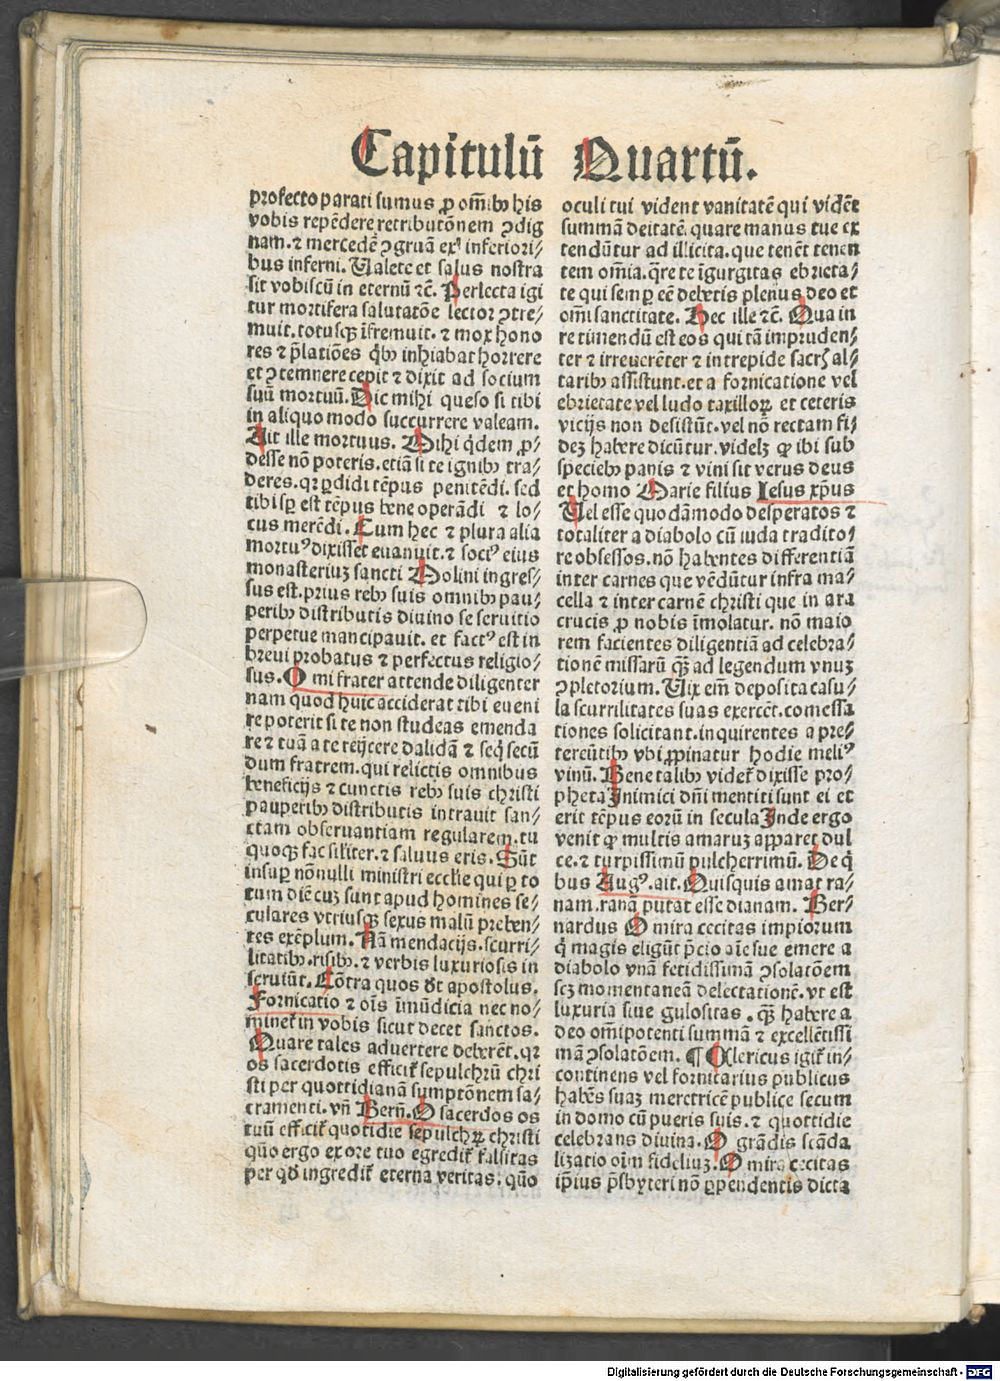 Capitulū Quartū.
profecto parati sumus ꝓ om̄ibꝫ his
vobis repēdere retributōnem ↄdig
nam. ⁊ mercedē ↄgruā exꝰ inferiori⸗
bus inferni. Ualete et salus nostra
sit vobiscū in eternū ⁊c̄. Perlecta igi
tur mortifera salutatōe lector ↄtre⸗
muit. totusqꝫ īfremuit. ⁊ mox hono
res ⁊ p̄latiōes q̄bꝫ inhiabat horrere
et ↄtemnere cepit ⁊ dixit ad socium
suū mortuū. Dic mihi queso si tibi
in aliquo modo succurrere valeam.
Ait ille mortuus. Mihi q̇dem ꝓ⸗
desse nō poteris. etiā si te ignibꝫ tra⸗
deres. qꝛ ꝑdidi tēpus penitēdi. sed
tibi sꝑ est tēpus bene operādi ⁊ lo⸗
cus merēdi. Cum hec ⁊ plura alia
mortuꝰ dixisset euanuit. ⁊ sociꝰ eius
monasteriuꝫ sancti Molini ingres⸗
sus est. prius rebꝫ suis omnibꝫ pau⸗
peribꝫ distributis diuino se seruitio
perpetue mancipauit. et factꝰ est in
breui probatus ⁊ perfectus religio⸗
sus. O mi frater attende diligenter
nam quod huic acciderat tibi eueni
re poterit si te non studeas emenda
re ⁊ tuā a te reijcere dalidā ⁊ seq̇ secū
dum fratrem. qui relictis omnibus
beneficijs ⁊ cunctis rebꝫ suis christi
pauperibꝫ distributis intrauit san⸗
ctam obseruantiam regularem. tu
quoqꝫ fac sil̄iter. ⁊ saluus eris. Sūt
insuꝑ nōnulli ministri ecclīe qui ꝑ to
tum diē cuꝫ sunt apud homines se⸗
culares vtriusqꝫ sexus malū preben⸗
tes exēplum. Nā mendacijs. scurri⸗
litatibꝫ. risibꝫ. ⁊ verbis luxuriosis in
seruiūt. Cōtra quos dt̄ apostolus.
Fornicatio ⁊ oīs īmūdicia nec no⸗
minet̄ in vobis sicut decet sanctos.
Quare tales aduertere deberēt. qꝛ
os sacerdotis efficit̄ sepulchrū chri
sti per quottidianā sumptōnem sa⸗
cramenti. vn̄ Bern̄. O sacerdos os
tuū efficit̄ quotidie sepulchꝝ christi
quō ergo ex ore tuo egredit̄ falsitas
per qd̄ ingredit̄ eterna veritas. quō
oculi tui vident vanitatē qui vidēt
summā deitatē. quare manus tue ex
tendūtur ad illicita. que tenēt tenen
tem om̄ia. q̄re te īgurgitas ebrieta⸗
te qui semꝑ eē deberis plenus deo et
om̄i sanctitate. Hec ille ⁊c̄. Qua in
re timendū est eos qui tā impruden⸗
ter ⁊ irreuerēter ⁊ intrepide sacrꝭ al⸗
taribꝫ assistunt. et a fornicatione vel
ebrietate vel ludo taxilloꝝ et ceteris
vicijs non desistūt. vel nō rectam fi⸗
deꝫ habere dicūtur. videlꝫ ꝙ ibi sub
speciebꝫ panis ⁊ vini sit verus deus
et homo Marie filius Iesus xp̄us
Uel esse quodāmodo desperatos ⁊
totaliter a diabolo cū iuda tradito⸗
re obsessos. nō habentes differentiā
inter carnes que vēdūtur infra ma⸗
cella ⁊ inter carnē christi que in ara
crucis ꝓ nobis īmolatur. nō maio
rem facientes diligentiā ad celebra⸗
tionē missarū qꝫ̄ ad legendum vnuꝫ
ↄpletorium. Uix em̄ deposita casu⸗
la scurrilitates suas exercēt. comessa
tiones solicitant. inquirentes a pre⸗
tereūtibꝫ vbi ꝓpinatur hodie meliꝰ
vinū. Bene talibꝫ videt̄ dixisse pro⸗
pheta Inimici dn̄i mentiti sunt ei et
erit tēpus eorū in secula Inde ergo
venit ꝙ multis amaruꝫ apparet dul
ce. ⁊ turpissimū pulcherrimū. De q̇
bus Augꝰ. ait. Quisquis amat ra⸗
nam. ranā putat esse dianam. Ber⸗
nardus O mira cecitas impiorum
q̇ magis eligūt p̄cio aīe sue emere a
diabolo vnā fetidissimā ↄsolatōem
scꝫ momentaneā delectationē. vt est
luxuria siue gulositas. qꝫ̄ habere a
deo om̄ipotenti summā ⁊ excellētissi
mā ↄsolatōem. ¶ Clericus igit̄ in⸗
continens vel fornicarius publicus
habēs suaꝫ meretricē publice secum
in domo cū pueris suis. ⁊ quottidie
celebrans diuina. O grādis scāda
lizatio oīm fideliuꝫ. O mira cecitas
ip̄ius p̄sbyteri nō ꝑpendentis dicta
Digitalisierung gefördert durch die Deutsche Forschungsgemeinschaft - DFG